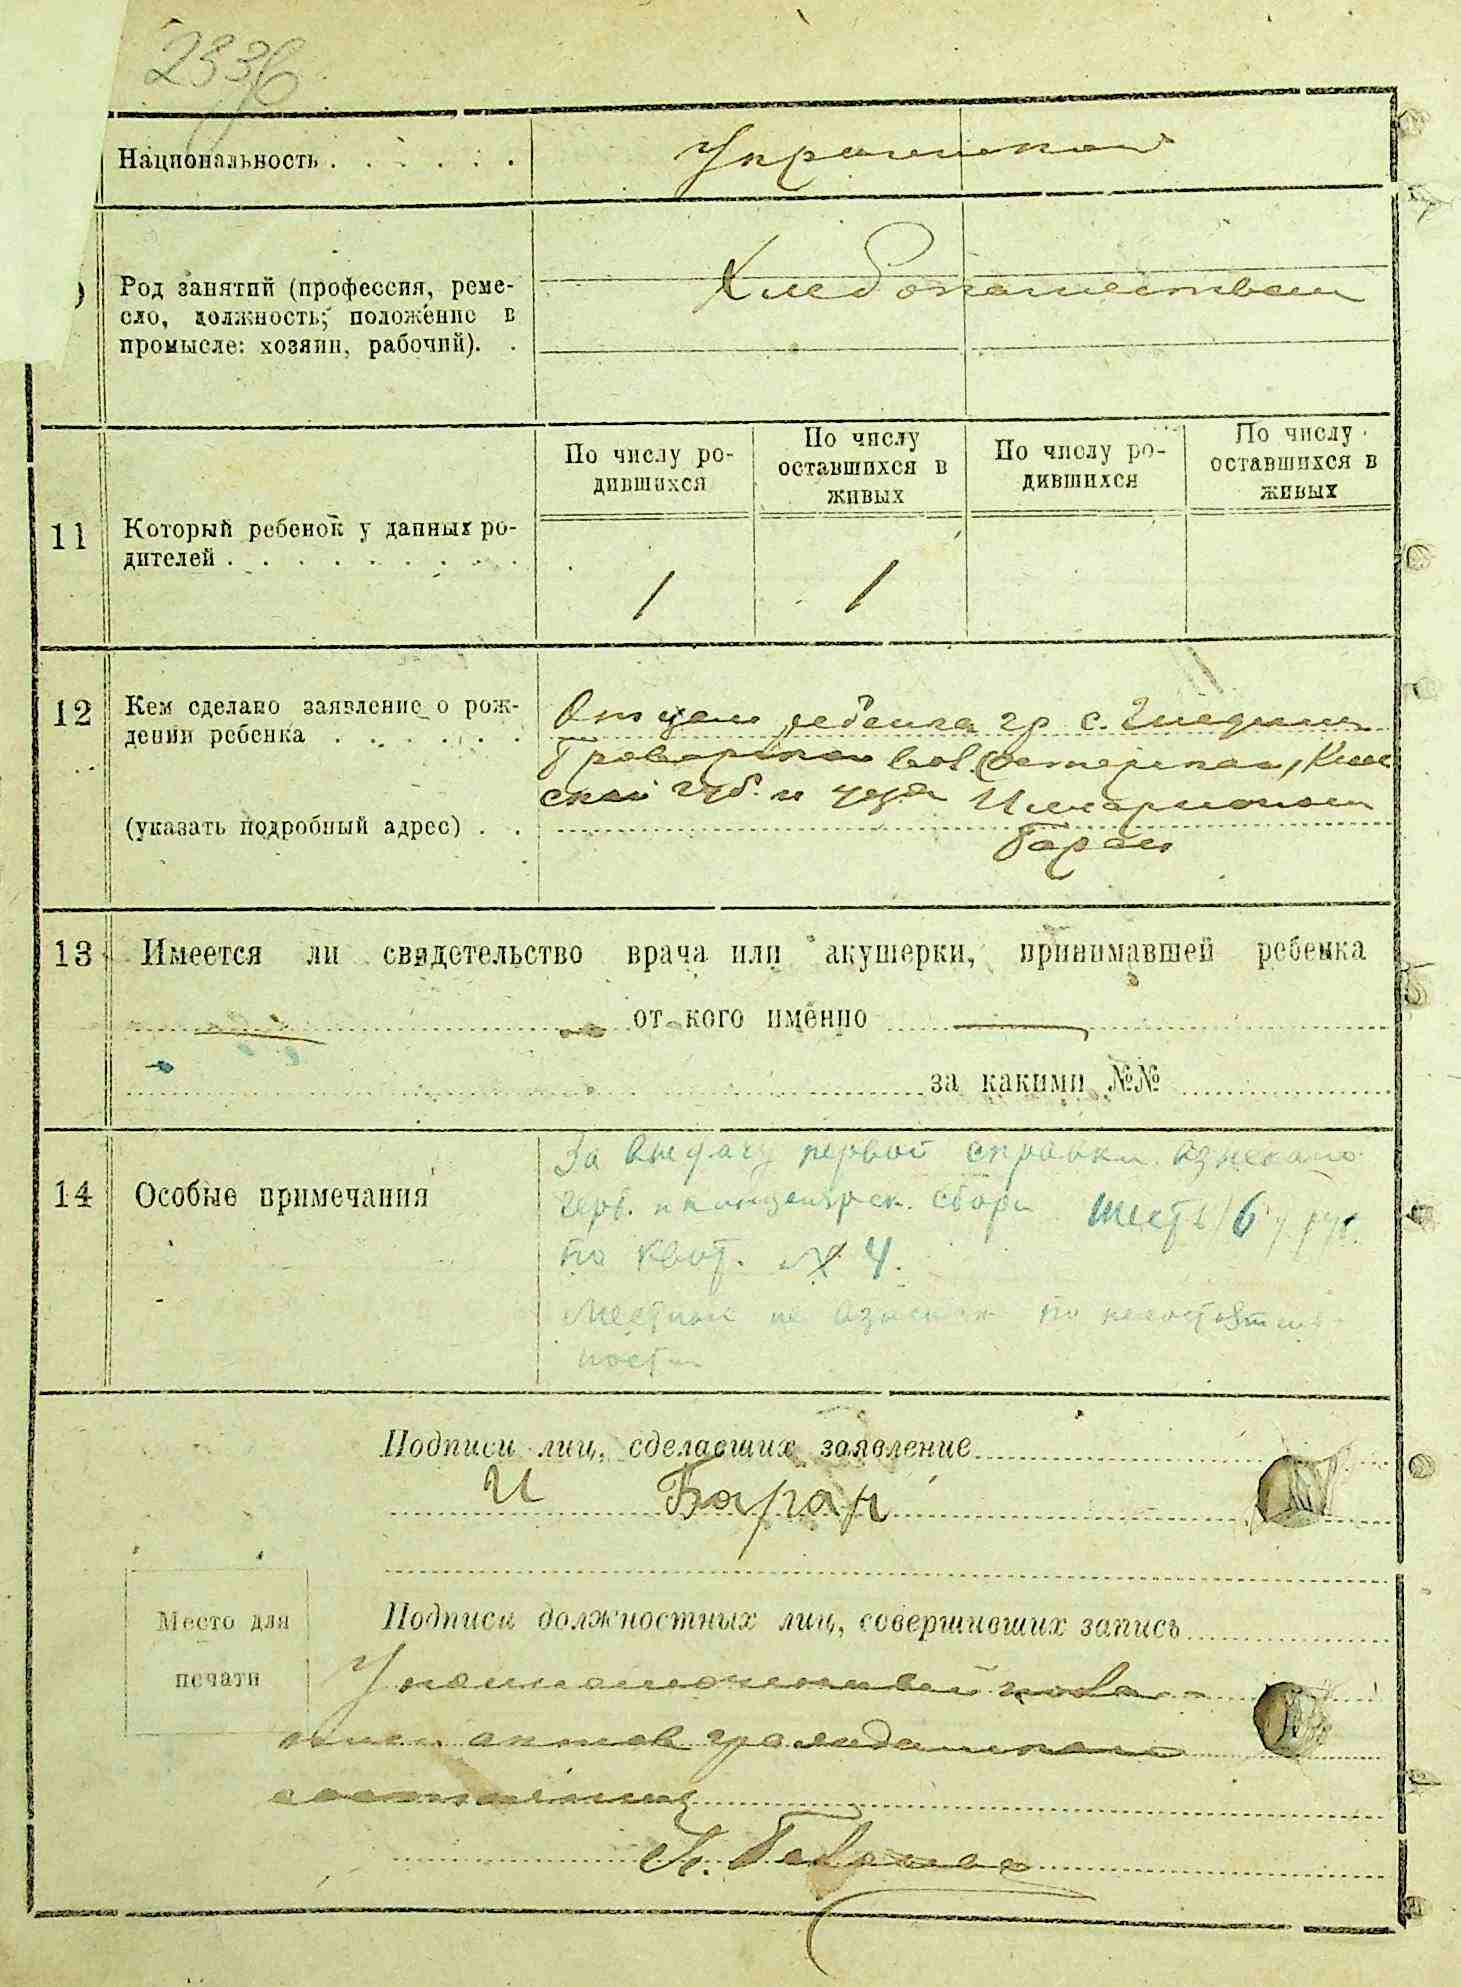 2336
Национальность
Украинская
Род занятий (профессия, реме-
сло, должность; положение в
промысле: хозяин, рабочий).
Хлебопашеством
По числу ро-
дившихся
По числу
оставшихся в
живых
По числу ро-
дившихся
По числу
оставшихся в
живых
11
Который ребенок у данных ро-
дителей
1 1
12
Кем сделано заявление о рож-
дении ребенка
(указать подробный адрес)
Отцем ребенка гр с. Гнедин
Броварской вол. Киев
ской губ. и уезда Илларионом
Баран
13
Имеется ли свидетельство врача или акушерки, принимавшей ребенка
от кого именно
за какими №№
14
Особые примечания
За выдачу первой справки взыскано
герб. и канцелярск. сбора шесть /6/ руб.
по квит. № 4.
Местные не взыскан по несостоятель-
ности
Подписи лиц, сделавших заявление
И Баран
Место для
печати
Подписи должностных лиц, совершивших запись
Уполномоченный по
актов гражданского
состояния